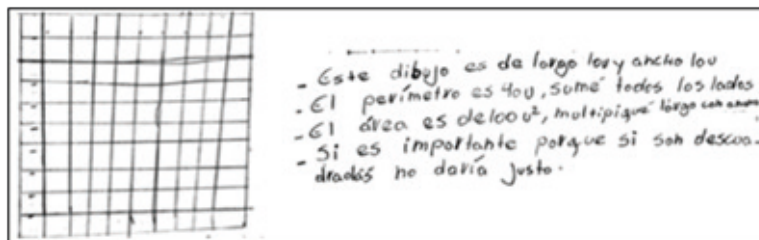 - Este dibujo es de largo 10u y ancho 10u
- El perímetro es 40u, sumé todos los lados
- El área es de 100 u², multipiqué largo con ancho
- Si es importante porque si son descua-
drados no daría justo.